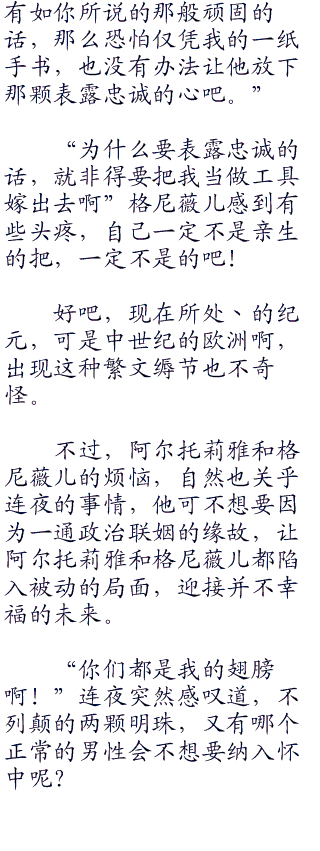 有如你所说的那般顽固的
话，那么恐怕仅凭我的一纸
手书，也没有办法让他放下
那颗表露忠诚的心吧。”
“为什么要表露忠诚的
话，就非得要把我当做工具
嫁出去啊”格尼薇儿感到有
些头疼，自己一定不是亲生
的把，一定不是的吧！
好吧，现在所处丶的纪
元，可是中世纪的欧洲啊，
出现这种繁文缛节也不奇
怪。
不过，阿尔托莉雅和格
尼薇儿的烦恼，自然也关乎
连夜的事情，他可不想要因
为一通政治联姻的缘故，让
阿尔托莉雅和格尼薇儿都陷
入被动的局面，迎接并不幸
福的未来。
“你们都是我的翅膀
啊！”连夜突然感叹道，不
列颠的两颗明珠，又有哪个
正常的男性会不想要纳入怀
中呢？